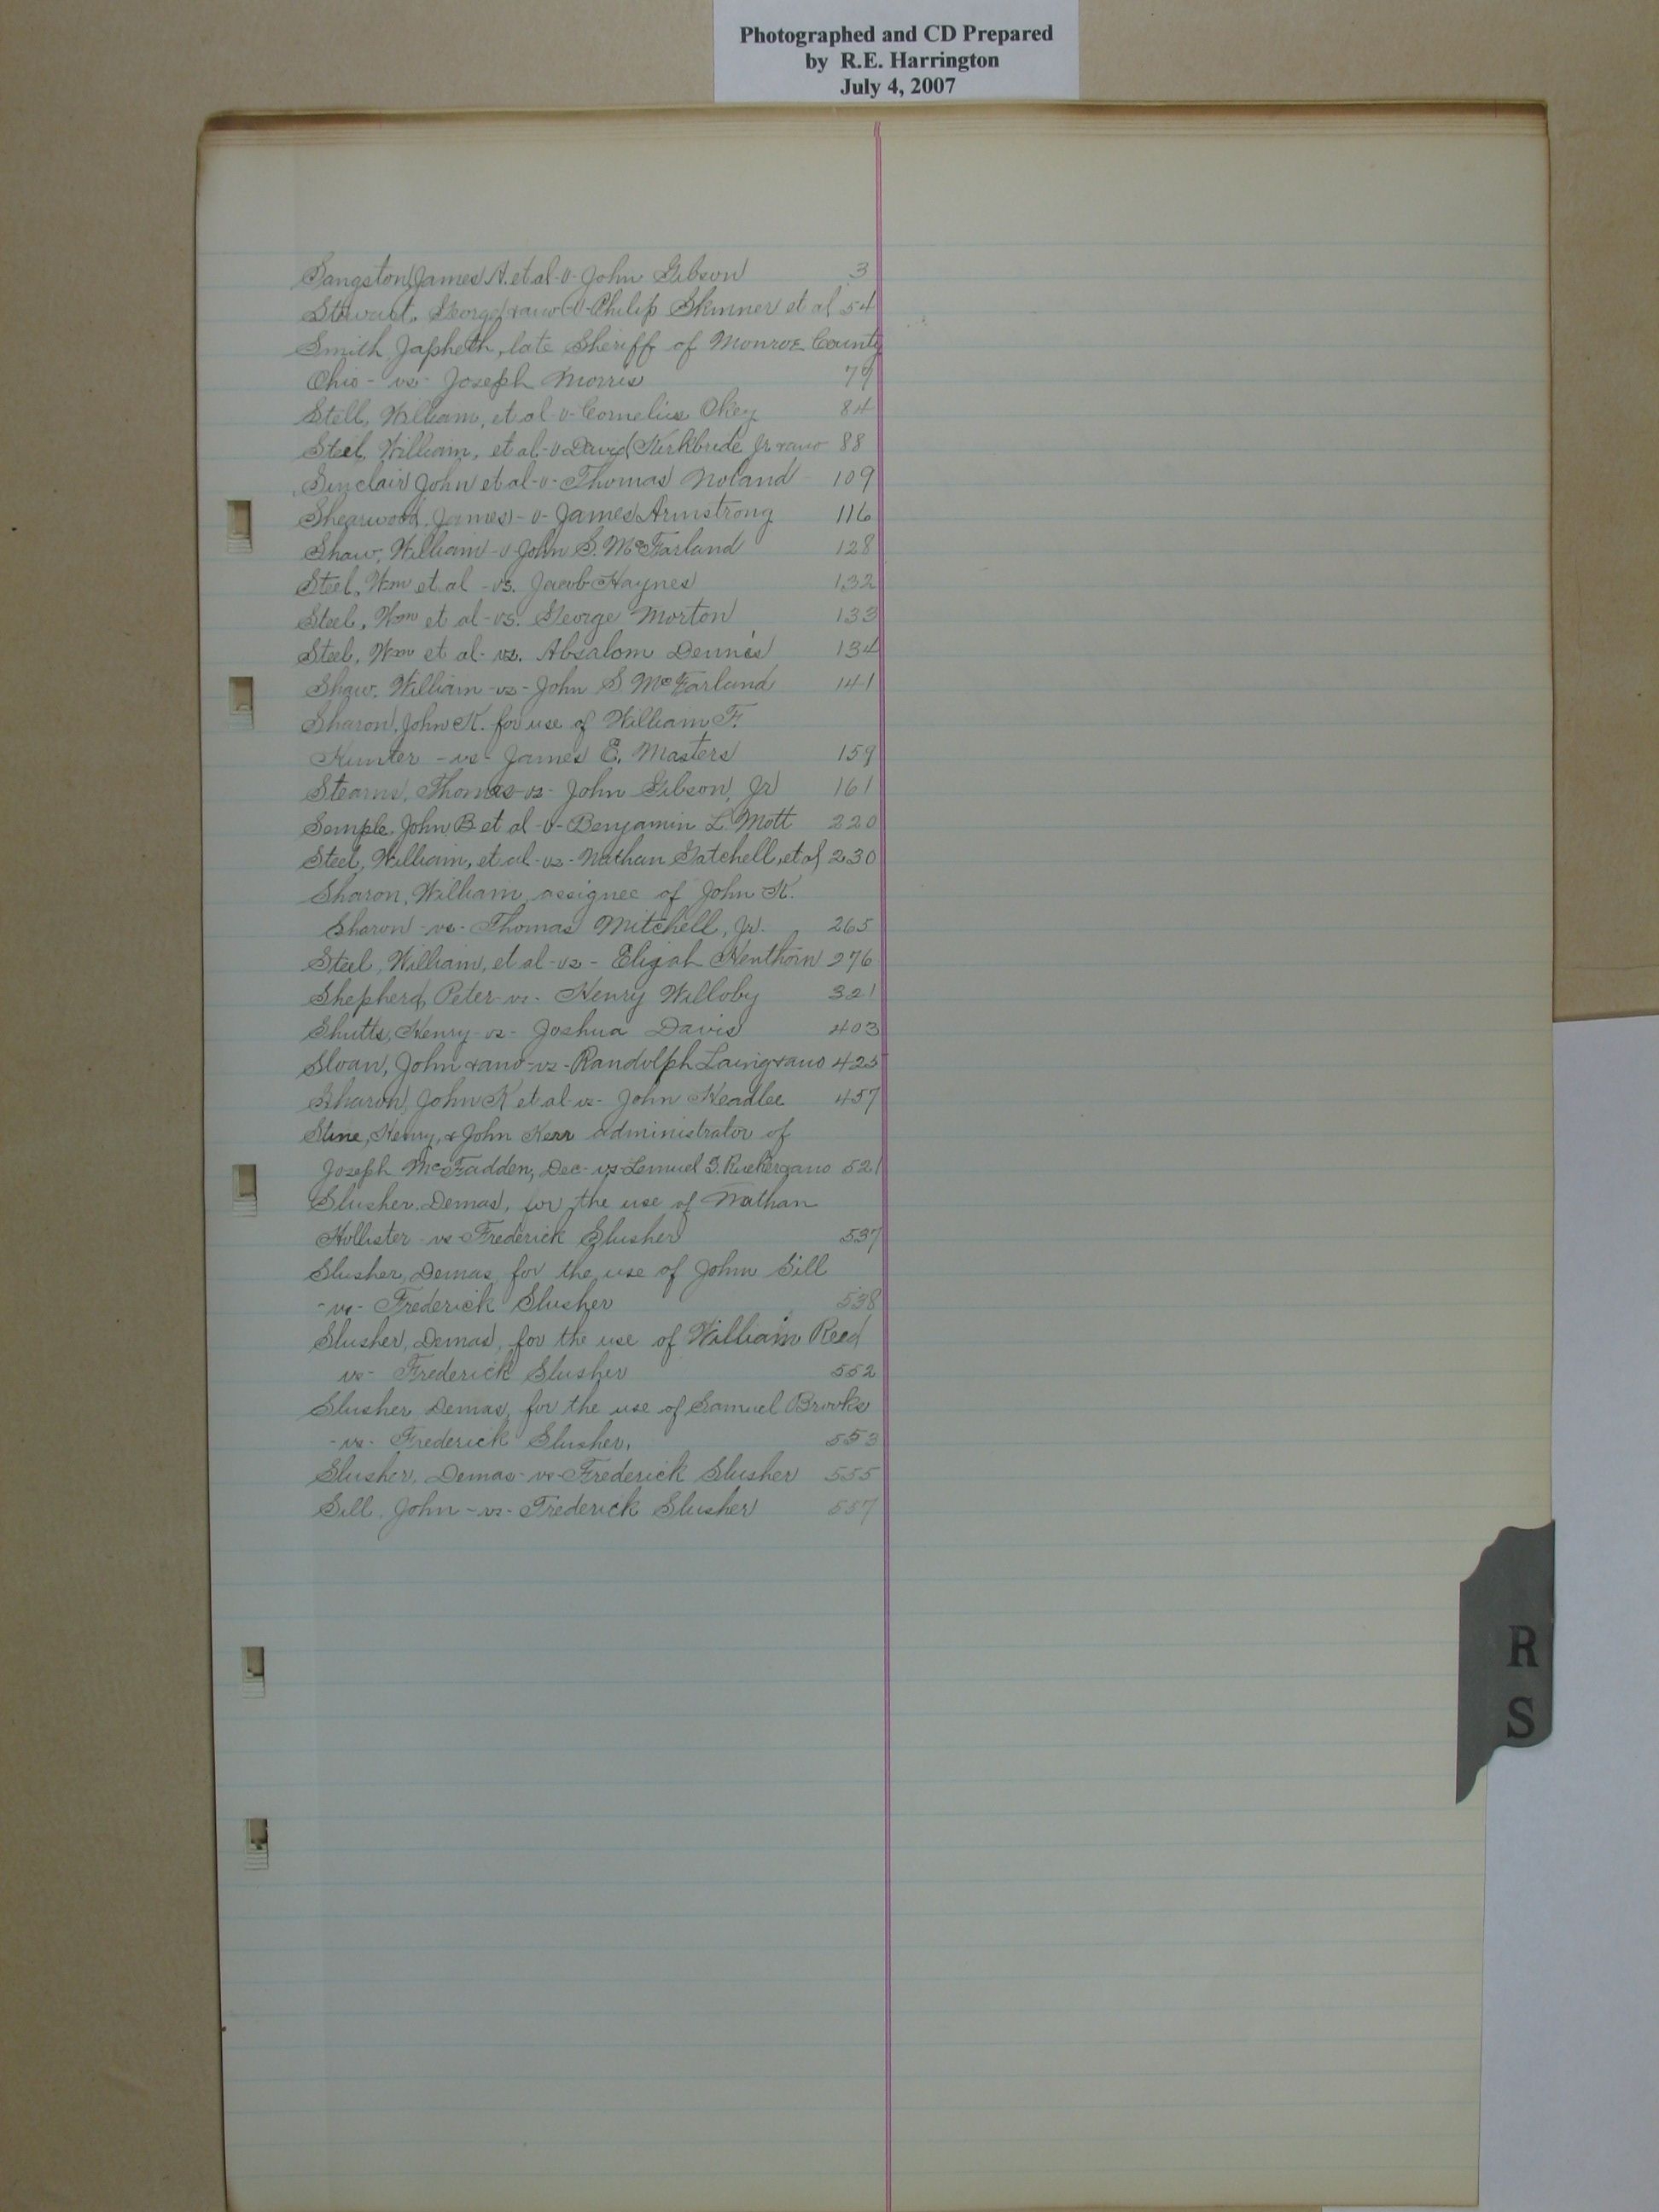 Photographed and CD Prepared
by R.E. Harrington
July 4, 2007
Sangston, James A. et al -v- John Gibson 3
Stewart, George & ano -v- Philip Skinner et al 54
Smith, Japheth, late Sheriff of Monroe County
Ohio - vs - Joseph Morris 79
Stell, William, et al -v- Cornelius Okey 84
Steel, William, et al -v- David Kirkbride Jr & ano 88
Sinclair John et al -v- Thomas Noland 109
Shearwood, James - v - James Armstrong 116
Shaw, William -v- John S. McFarland 128
Steel, Wm et al - vs. Jacob Haynes 132
Steel, Wm et al - vs. George Morton 133
Steel, Wm et al - vs. Absalom Dennis 134
Shaw, William - vs - John S. McFarland 141
Sharon, John K. for use of William F.
Hunter - vs - James E. Masters 159
Stearns, Thomas - vs - John Gibson, Jr 161
Semple, John B et al -v- Benjamin L. Mott 220
Steel, William, et al - vs - Nathan Gatchell, et al 230
Sharon, William, assignee of John K.
Sharon - vs - Thomas Mitchell, Jr. 265
Steel, William, et al - vs - Elijah Henthorn 276
Shepherd, Peter - vs - Henry Willoby 321
Shutts, Henry - vs - Joshua Davis 403
Sloan, John & ano - vs - Randolph Laing & ano 425
Sharon, John K et al - vs - John Headlee 457
Stine, Henry, & John Kerr administrator of
Joseph McFadden, Dec - vs - Lemuel 521
Slusher, Demas, for the use of Nathan
Hollister - vs - Frederick Slusher 537
Slusher, Demas, for the use of John Sill
- vs - Frederick Slusher 538
Slusher, Demas, for the use of William Reed
vs - Frederick Slusher 552
Slusher, Demas, for the use of Samuel Brooks
- vs - Frederick Slusher, 553
Slusher, Demas - vs - Frederick Slusher 555
Sill, John - vs - Frederick Slusher 557
R
S